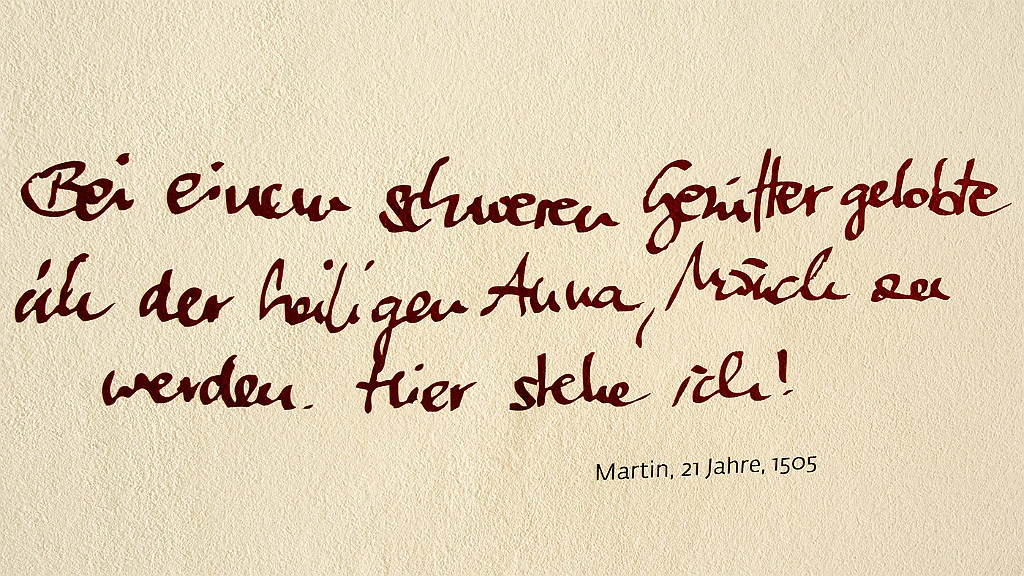 Bei einem schweren Gewitter gelobte
ich der heiligen Anna, Mönch zu
werden. Hier stehe ich!
Martin, 21 Jahre, 1505